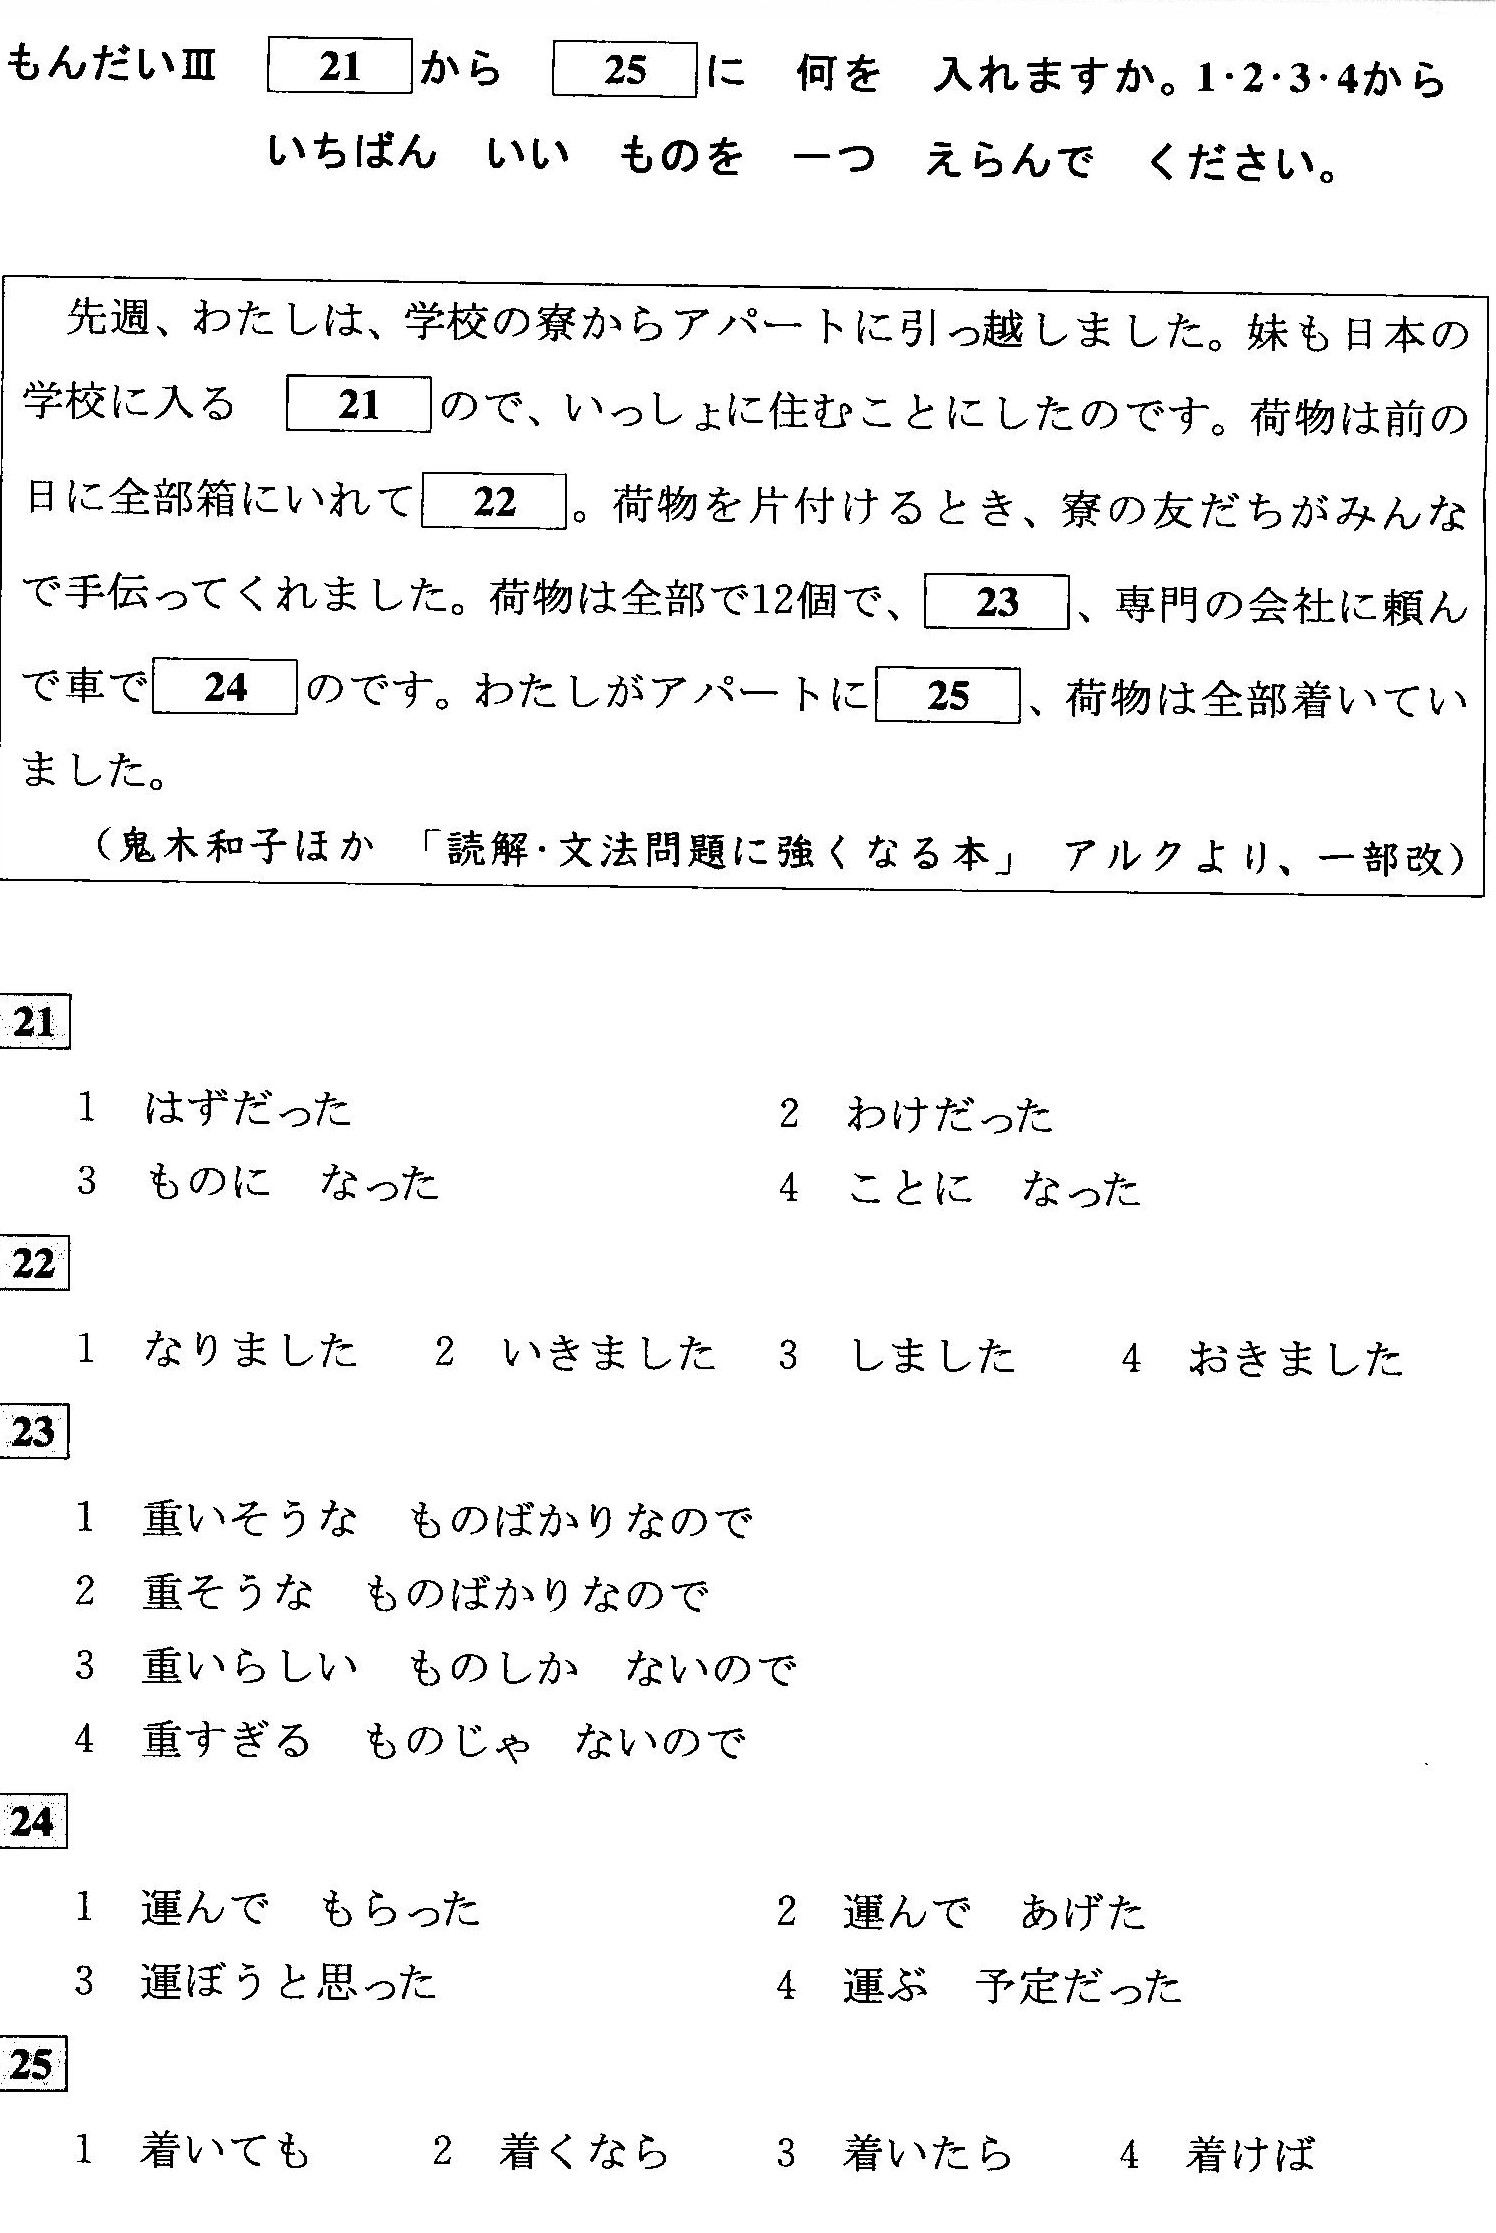 もんだいⅢ　21から　25に　何を　入れますか。1・2・3・4から
いちばん　いい　ものを　一つ　えらんで　ください。
先週、わたしは、学校の寮からアパートに引っ越しました。妹も日本の
学校に入る　21ので、いっしょに住むことにしたのです。荷物は前の
日に全部箱にいれて22。荷物を片付けるとき、寮の友だちがみんな
で手伝ってくれました。荷物は全部で12個で、23、専門の会社に頼ん
で車で24のです。わたしがアパートに25、荷物は全部着いてい
ました。
（鬼木和子ほか　「読解・文法問題に強くなる本」　アルクより、一部改）
21
1　はずだった　2　わけだった
3　ものに　なった　4　ことに　なった
22
1　なりました　2　いきました　3　しました　4　おきました
23
1　重いそうな　ものばかりなので
2　重そうな　ものばかりなので
3　重いらしい　ものしか　ないので
4　重すぎる　ものじゃ　ないので
24
1　運んで　もらった　2　運んで　あげた
3　運ぼうと思った　4　運ぶ　予定だった
25
1　着いても　2　着くなら　3　着いたら　4　着けば